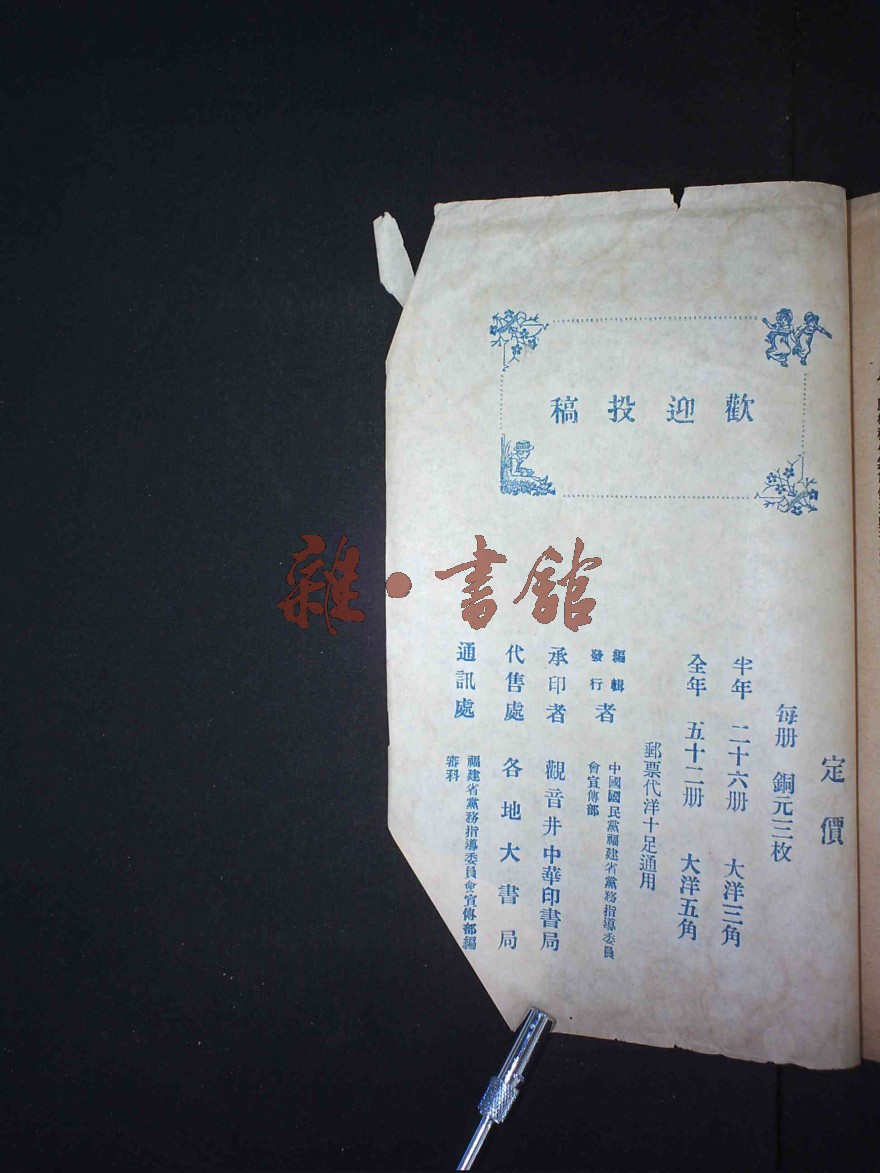 歡迎投稿
定價
每册 銅元三枚
半年 二十六册 大洋三角
全年 五十二册 大洋五角
郵票代洋十足通用
編輯
發行 者 中國國民黨福建省黨務指導委員
會宣傳部
承印者 觀音井中華印書局
代售處 各地大書局
通訊處 福建省黨務指導委員會宣傳部編
審科
雜·書館